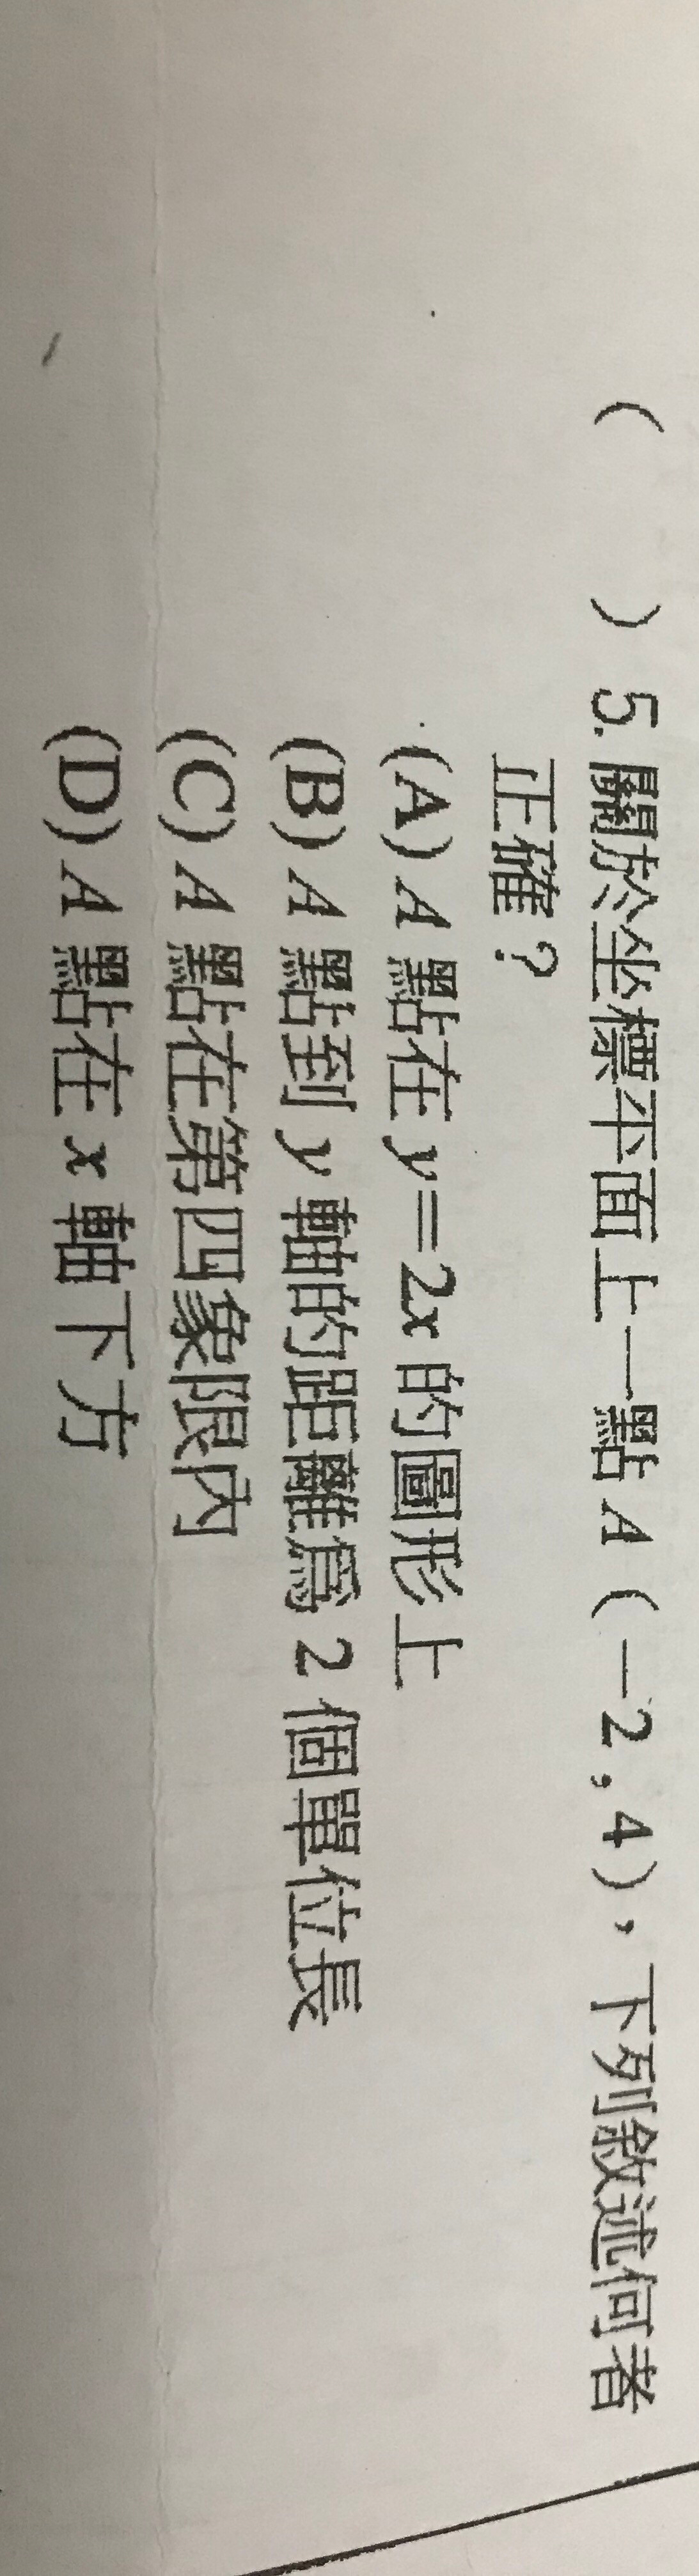 (　　) 5. 關於坐標平面上一點 A (-2, 4)，下列敘述何者
正確？
(A) A 點在 y=2x 的圖形上
(B) A 點到 y 軸的距離為 2 個單位長
(C) A 點在第四象限內
(D) A 點在 x 軸下方